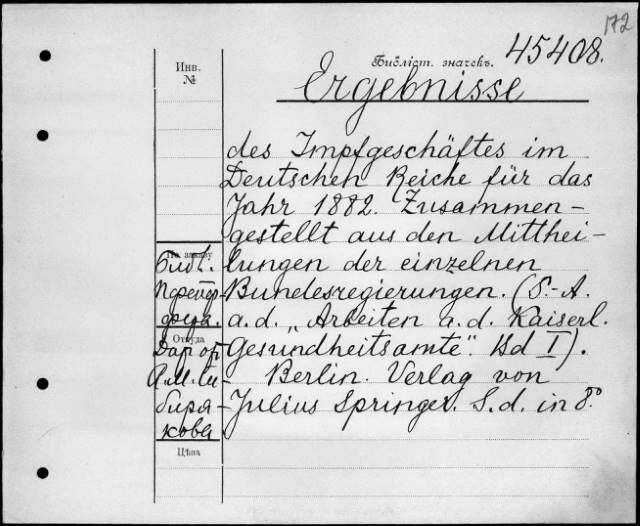 172
Библіот. значекъ. 45408.
Инв.
№
Ergebnisse
des Impfgeschäftes im
Deutschen Reiche für das
Jahr 1882. Zusammen-
gestellt aus den Mitthei-
lungen der einzelnen
Bundesregierungen. (S.-A.
a. d. „Arbeiten a. d. Kaiserl.
Gesundheitsamte". Bd I).
Berlin. Verlag von
Julius Springer. S. d. in 8°
По заказу
Библ.
Пфейф-
фера.
Откуда
Дар от
А. М. Си-
биря-
кова
Цѣна